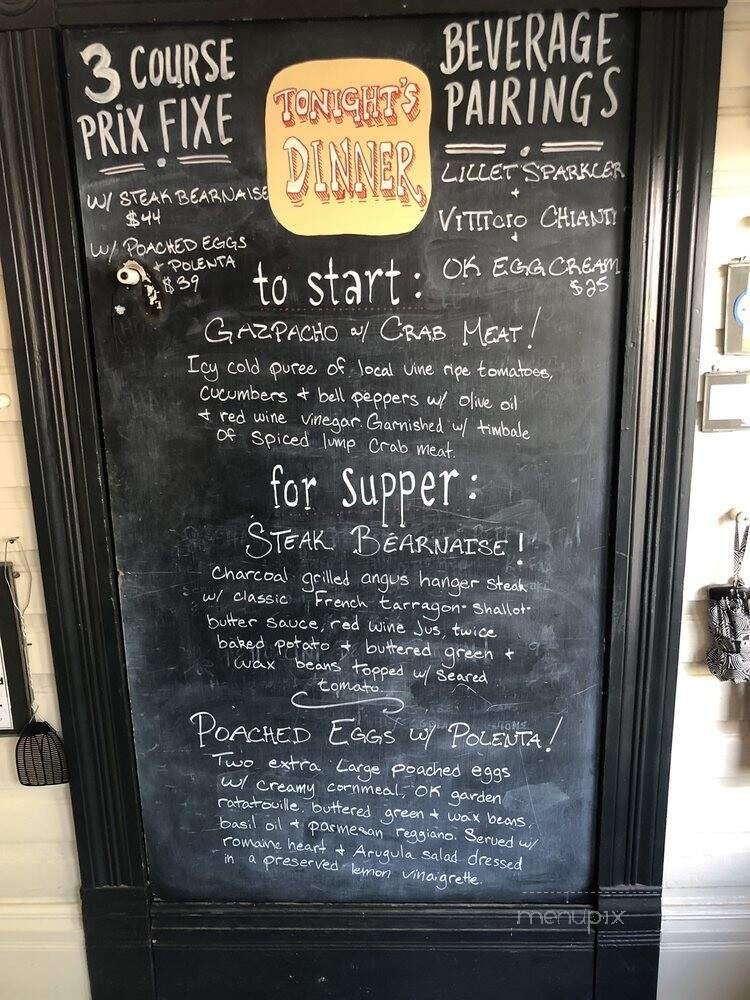 3 COURSE
PRIX FIXE
W/ STEAK BEARNAISE
$44
W/ POACHED EGGS
+ POLENTA
$39
TONIGHT'S
DINNER
BEVERAGE
PAIRINGS
LILLET SPARKLER
+
VITTICIO CHIANTI
+
OK EGG CREAM
$25
to start:
GAZPACHO w/ CRAB MEAT!
Icy cold puree of local vine ripe tomatoes,
cucumbers + bell peppers w/ olive oil
+ red wine vinegar. Garnished w/ timbale
of spiced lump crab meat.
for supper:
STEAK BÉARNAISE!
Charcoal grilled angus hanger steak
w/ classic French tarragon-shallot-
butter sauce, red wine jus, twice
baked potato + buttered green +
wax beans topped w/ seared
tomato.
POACHED EGGS w/ POLENTA!
Two extra large poached eggs
w/ creamy cornmeal, OK garden
ratatouille, buttered green + wax beans,
basil oil + parmesan reggiano. Served w/
romaine heart + Arugula salad dressed
in a preserved lemon vinaigrette.
menupix